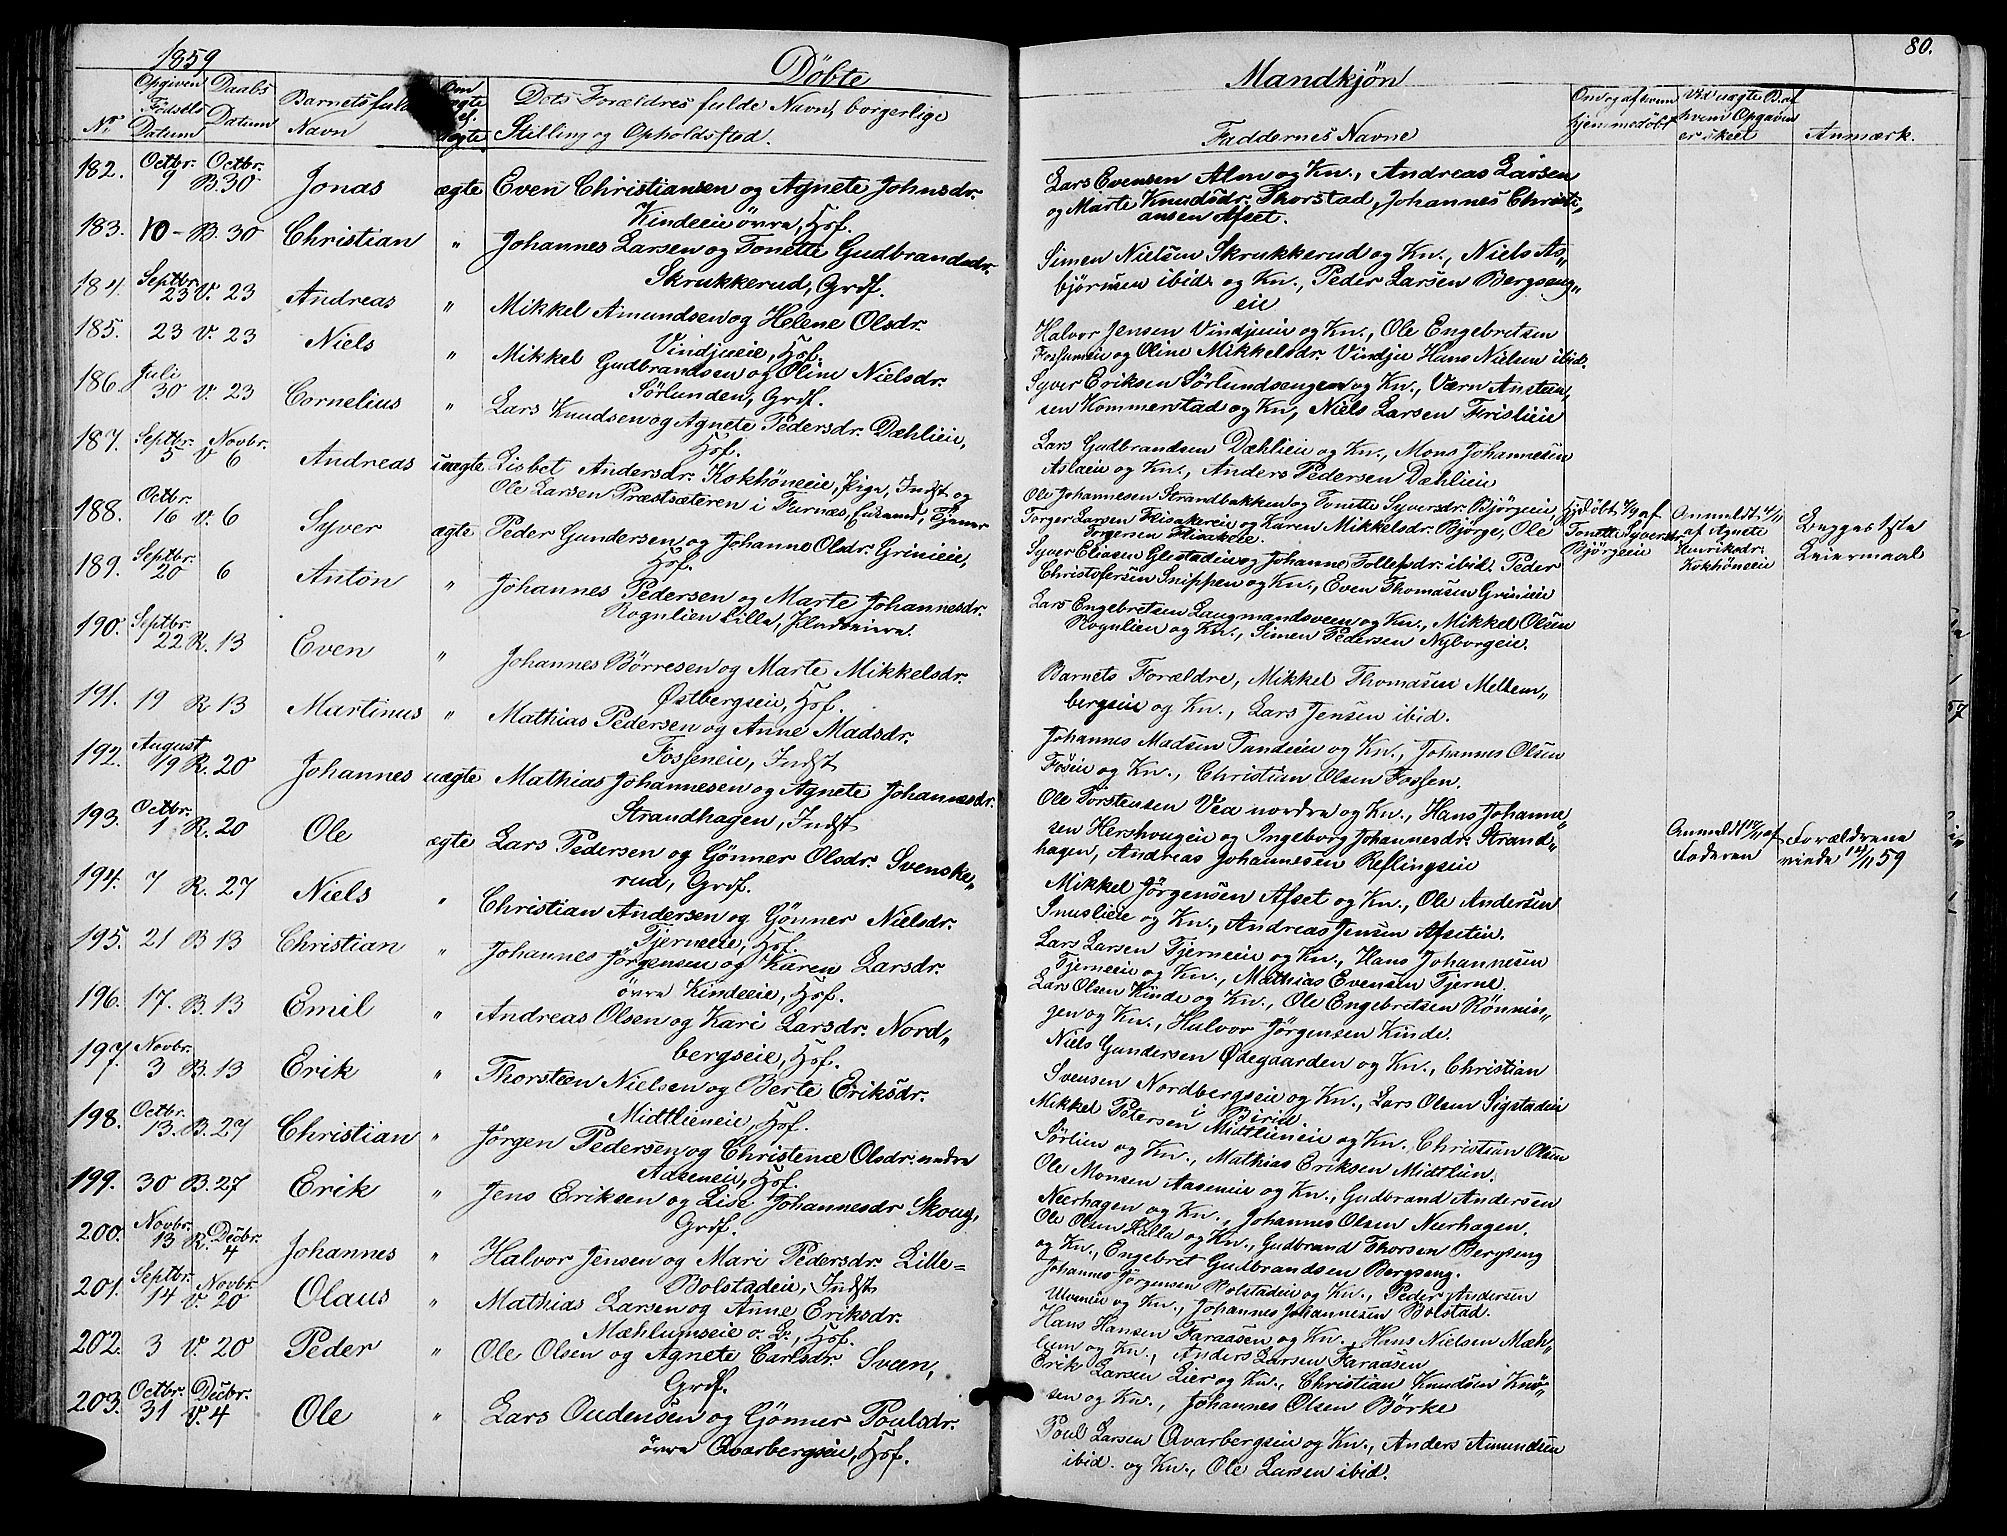 1859 Døbte Mandkjøn 80.
No. Opgiven Fødsels Datum Daabs Datum Barnets fulde Navn Om ægte el. uægte Dets Forældres fulde Navn, borgerlige Stilling og Opholdssted.
Faddernes Navne Om og af hvem hjemmedøbt Ved uægte Barn hvem Opgaven er skeet Anmærk.
182. Octbr. 9 Octbr. B. 30 Jonas ægte Even Christiansen og Agnete Johnsdr.
Kindeeie övre, Hof.
183. 10 - B. 30 Christian " Johannes Larsen og Tonette Gudbrandsdr.
Skrukkerud, Grdf.
184. Septbr. 23 V. 23 Andreas " Mikkel Amundsen og Helene Olsdr.
Vindjueie, Hof.
185. 23 V. 23 Niels " Mikkel Gudbrandsen og Oline Nielsdr.
Sörlunden, Grdf.
186. Juli 30 V. 23 Cornelius " Lars Knudsen og Agnete Pedersdr. Dæhlieie,
Hof.
187. Septbr. 5 Novbr. V 6 Andreas uægte Lisbet Andersdr. Kokhöneeie, Pige, Indst og
Ole Larsen Præstsæteren i Furnæs, Tjener
188. Octbr. 16 V. 6 Syver ægte Peder Gundersen og Johanne Olsdr. Grinieie,
Hof.
189. Septbr. 20 6 Anton " Johannes Pedersen og Marte Johannesdr.
Rognlien Lille,
190. Septbr. 22 R. 13 Even " Johannes Börresen og Marte Mikkelsdr.
Østbergseie, Hof.
191. 19 R 13 Martinus " Mathias Pedersen og Anne Madsdr.
Fosseneie, Indst
192. August 19 R. 20 Johannes uægte Mathias Johannesen og Agnete Johannesdr.
Strandhagen, Indst
193. Octbr. 1 R. 20 Ole ægte Lars Pedersen og Gönner Olsdr. Svenske„
rud, Grdf.
194. 7 R. 27 Niels " Christian Andersen og Gönner Nielsdr.
Tjerneeie, Hof.
195. 21 B 13 Christian " Johannes Jörgensen og Karen Larsdr.
övre Kindeeie, Hof.
196. 17. B. 13 Emil " Andreas Olsen og Kari Larsdr. Nord„
bergseie, Hof.
197. Novbr. 3 B. 13 Erik " Thorsteen Nielsen og Berte Eriksdr.
Midtlieneie, Hof.
198. Octbr. 13. B. 27 Christian " Jörgen Pedersen og Christence Olsdr. nedre
Aaseneie, Hof.
199. 30 B. 27 Erik " Jens Eriksen og Lise Johannesdr Skoug,
Grdf.
200. Novbr. 13 R. Decbr. 4 Johannes " Halvor Jensen og Mari Pedersdr. Lille=
Bolstadeie, Indst
201. Septbr. 14 Novbr. V. 20 Olaus " Mathias Larsen og Anne Eriksdr.
Mæhlumseie o. L., Hof.
202. 3 V. 20 Peder " Ole Olsen og Agnete Carlsdr. Svæn,
Grdf.
203. Octbr. 31 Decbr. V. 4 Ole " Lars Oudensen og Gönner Poulsdr.
övre Qvarbergseie, Hof.
Lars Evensen Alm og Kn., Andreas Larsen
og Marte Knudsdr. Thorstad, Johannes Christi„
ansen Afset.
Simen Nielsen Skrukkerud og Kn., Niels As„
björnsen ibid. og Kn., Peder Larsen Bergseng„
eie
Halvor Jensen Vindjueie og Kn., Ole Engebretsen
Fossumeie og Oline Mikkelsdr. Vindju Hans Nielsen ibid.
Syver Eriksen Sörlundsengen og Kn., Værn Ansteen„
sen Kommerstad og Kn, Niels Larsen Frislieie
Lars Gudbrandsen Dæhlieie og Kn., Mons Johannesen
Aslaeie og Kn., Anders Pedersen Dæhlieie
Ole Johannesen Strandbakken og Tonette Syversdr. Bjørgeeie,
Torger Larsen Flisakereie og Karen Mikkelsdr. Bjørge, Ole
Torgersen Flisakere.
Hjdöbt af Tonette Syversdr. Bjørgeeie
Anmeldt af Agnete Henriksdr. Kokhöneeie
Begges 1ste Leiermaal
Syver Eliasen Glestadeie og Johanne Tollefsdr. ibid. Peder
Christofersen Snippen og Kn., Even Thomasen Grinieie
Lars Engebretsen Laugmandsveen og Kn., Mikkel Olsen
Rognlien og Kn., Simen Pedersen Nyborgeie.
Barnets Forældre, Mikkel Thomasen Mellem„
bergseie og Kn., Lars Jensen ibid.
Johannes Madsen Tandeeie og Kn., Johannes Olsen
Foseie og Kn., Christian Olsen Fossen.
Ole Torstensen Vea nordre og Kn., Hans Johanne„
sen Hershougeie og Ingeborg Johannesdr. Strand„
hagen, Andreas Johannesen Reflingseie
Anmeldt 17/11 af Faderen
Forældrene viede 14/11 59
Mikkel Jörgensen Afset og Kn., Ole Andersen
Snuslieie og Kn., Andreas Jensen Afseteie.
Lars Larsen Tjerneeie og Kn., Hans Johannesen
Tjerneeie og Kn., Mathias Evensen Tjerne.
Lars Olsen Kinde og Kn., Ole Engebretsen Rönnin„
gen og Kn., Halvor Jörgensen Kinde.
Niels Gundersen Ødegaarden og Kn., Christian
Svensen Nordbergseie og Kn., Lars Olsen Sigstadeie
i Birid.
Mikkel Petersen Midtlieneie og Kn., Christian Olsen
Sörlien og Kn., Mathias Eriksen Midtlien.
Ole Monsen Aaseneie og Kn., Gudbrand Andersen
Nærhagen og Kn., Johannes Olsen Nærhagen.
Ole Olsen Halla og Kn., Gudbrand Thorsen Bergseng
og Kn., Engebret Gudbrandsen Bergseng.
Johannes Jörgensen Bolstadeie og Kn., Peder Andersen
Ulveneie og Kn., Johannes Johannesen Bolstad.
Hans Hansen Faraasen og Kn., Hans Nielsen Mæh„
lum og Kn., Anders Larsen Faraasen
Erik Larsen Lier og Kn., Christian Knudsen Knö„
sen og Kn., Johannes Olsen Börke
Poul Larsen Qvarbergseie og Kn., Anders Amundsen
ibid. og Kn., Ole Larsen ibid.